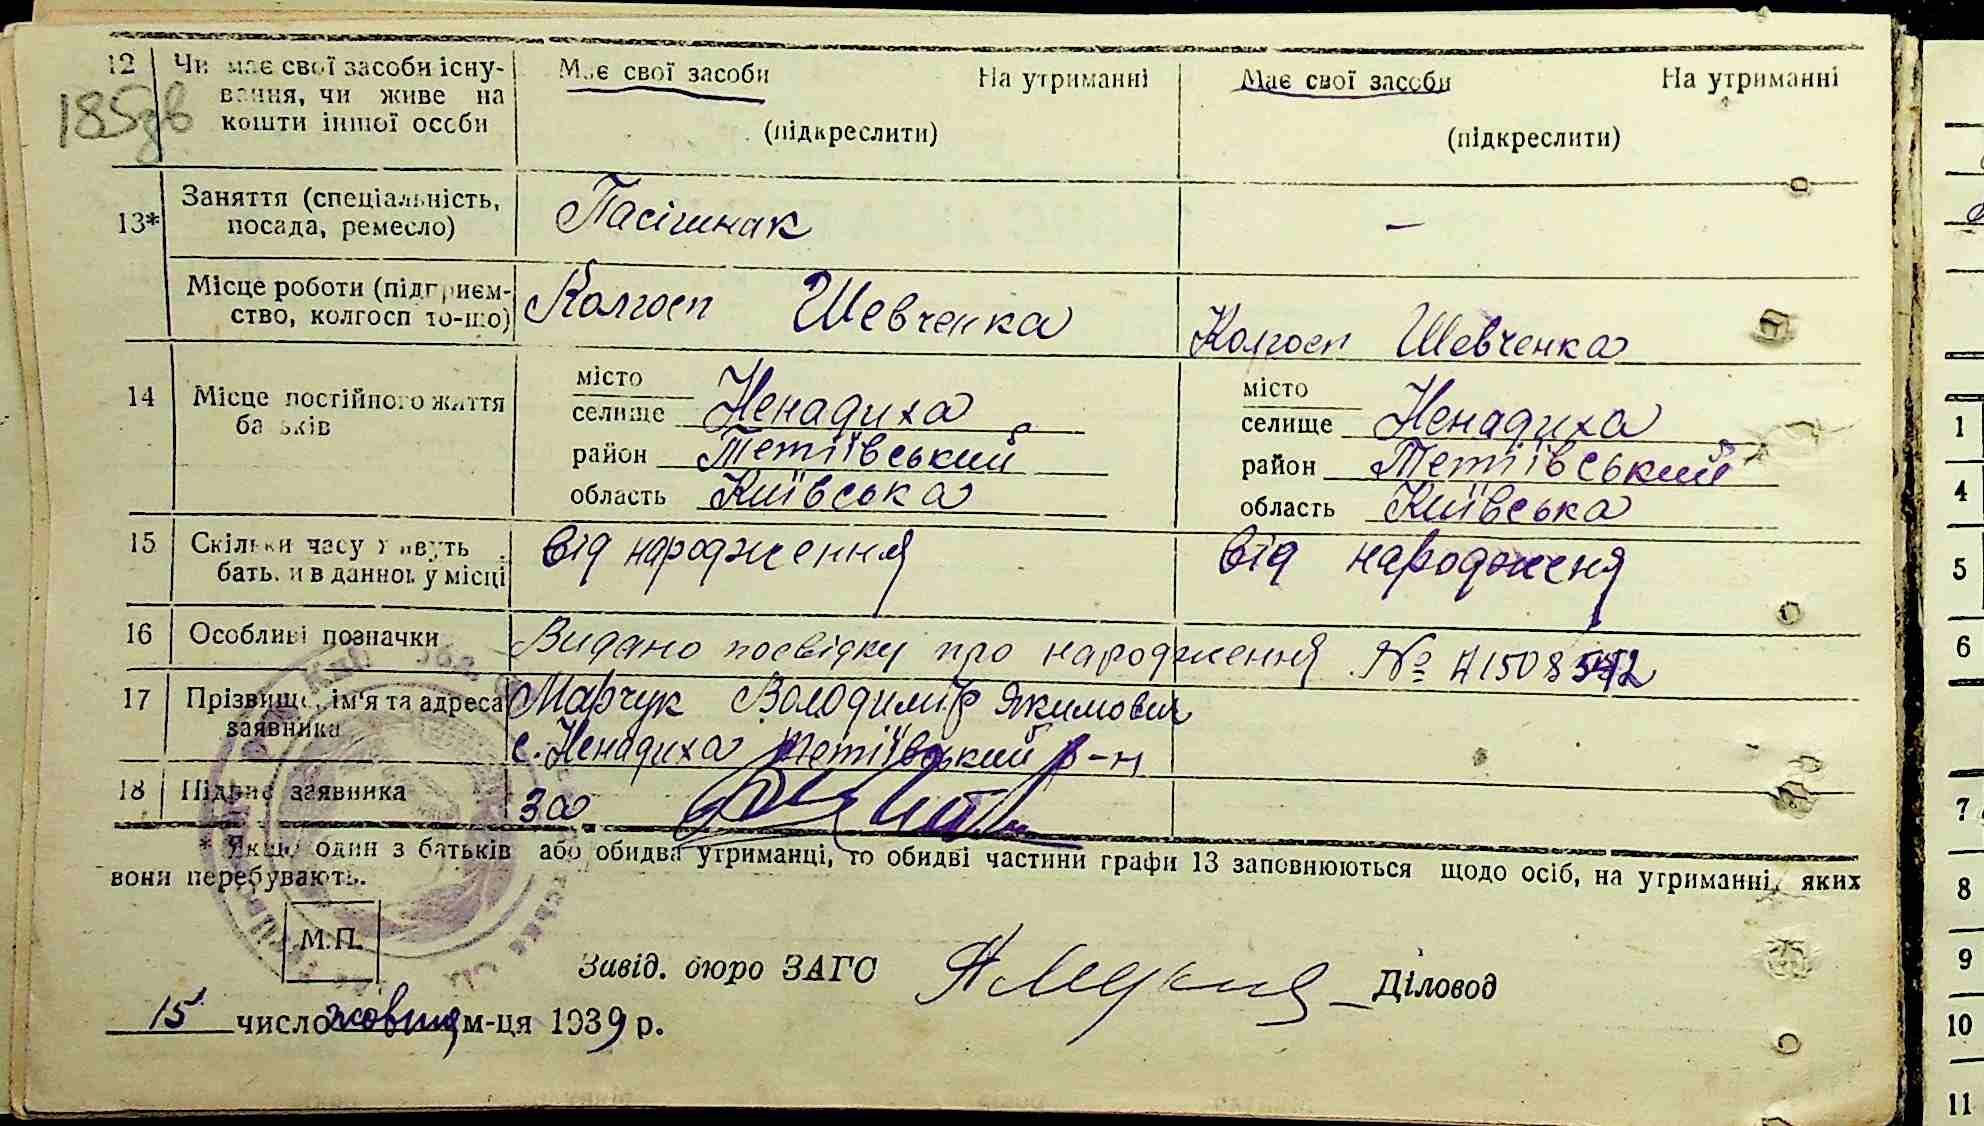 12 Чи має свої засоби існу- Має свої засоби На утриманні Має свої засоби На утриманні
185зв вання, чи живе на
кошти іншої особи (підкреслити) (підкреслити)
13* Заняття (спеціальність, Пасішнак —
посада, ремесло)
Місце роботи (підприєм- Колгосп Шевченка Колгосп Шевченка
ство, колгосп то-що)
14 Місце постійного життя місто місто
батьків селище Ненадиха селище Ненадиха
район Тетіївський район Тетіївський
область Київська область Київська
15 Скільки часу живуть від народження від народженя
батьки в данному місці
16 Особливі позначки Видано посвідку про народження № А1508542
17 Прізвище, ім'я та адреса Марчук Володимир Якимович
заявника с. Ненадиха Тетіївський р-н
18 Підпис заявника За
* Якщо один з батьків або обидва утриманці, то обидві частини графи 13 заповнюються щодо осіб, на утриманні, яких
вони перебувають.
М.П.
Завід. бюро ЗАГС Діловод
15 число жовтня м-ця 1939 р.
1
4
5
6
7
8
9
10
11